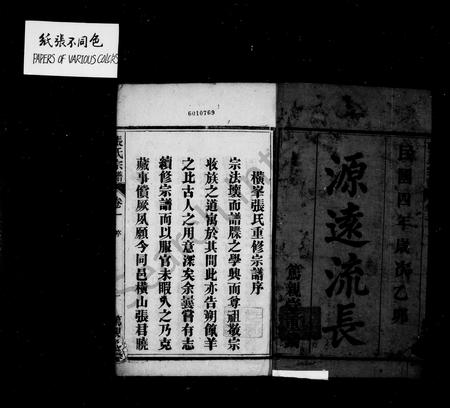 紙張不同色
PAPERS OF VARIOUS COLORS
6010769
民國四年歲次乙卯
源遠流長
橫峯張氏重修宗譜序
宗法壞而譜牒之學興而尊祖敬宗
收族之道寓於其間此亦告朔餼羊
之比古人之用意深矣余曩嘗有志
續修宗譜而以服官未暇久之乃克
蕆事償厥夙願今同邑橫山張君曉
張氏宗譜
卷一
序